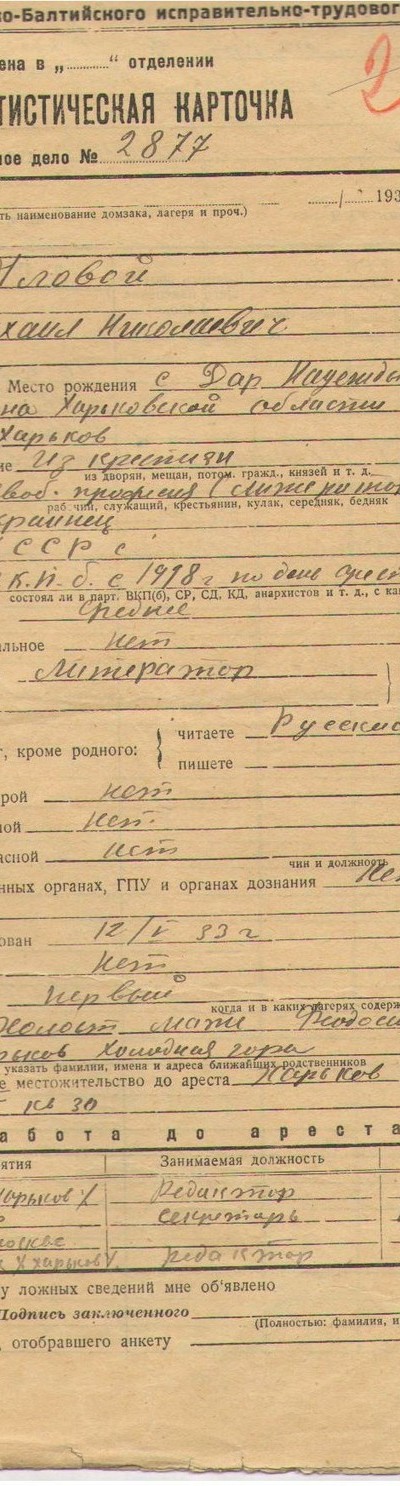 ко-Балтийского исправительно-трудового
ена в „............“ отделении
ТИСТИЧЕСКАЯ КАРТОЧКА
2
ное дело № 2877
193
ть наименование домзака, лагеря и проч.)
Яловой
хаил Николаевич
Место рождения с Дар Надежды
на Харьковской области
Харьков
ие из крестьян
из дворян, мещан, потом. гражд., князей и т. д.
своб. профессия (
раб.чий, служащий, крестьянин, кулак, середняк, бедняк
краинец
СССР
К.П.б. с 1918 г по день
состоял ли в парт. ВКП(б), СР, СД, КД, анархистов и т. д., с ка
Среднее
льное нет
Литератор
читаете Русский
т, кроме родного:
пишете
рой нет
ной нет.
асной нет
чин и должность
нных органах, ГПУ и органах дознания Нет
ован 12/V 33 г
нет
первый
когда и в каких лагерях содерж
Холост мать Феодос
рьков Холодная гора
указать фамилии, имена и адреса ближайших родственников
е местожительство до ареста Харьков
кв 30
абота до ареста
ятия Занимаемая должность
Харьков Редактор
секретарь
Москве
Харьков редактор
у ложных сведений мне об'явлено
Подпись заключенного
(Полностью: фамилия, и
, отобравшего анкету